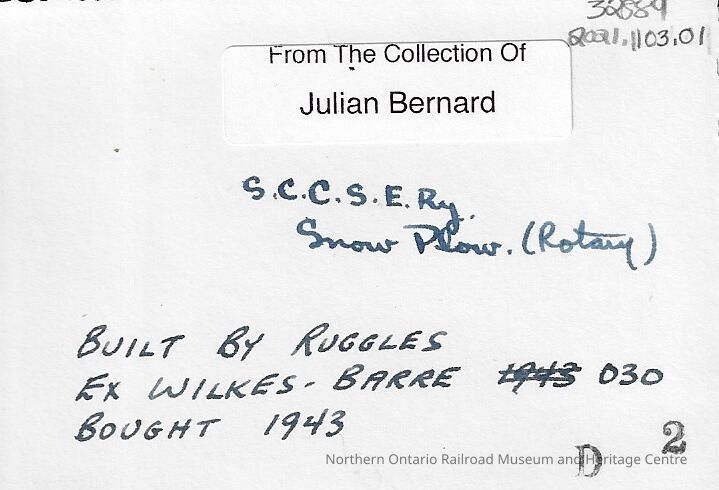 32889
2021.103.01
From The Collection Of
Julian Bernard
S.C.C.S.E.Ry.
Snow Plow. (Rotary)
BUILT BY RUGGLES
EX WILKES-BARRE 1943 030
BOUGHT 1943
D 2
Northern Ontario Railroad Museum and Heritage Centre